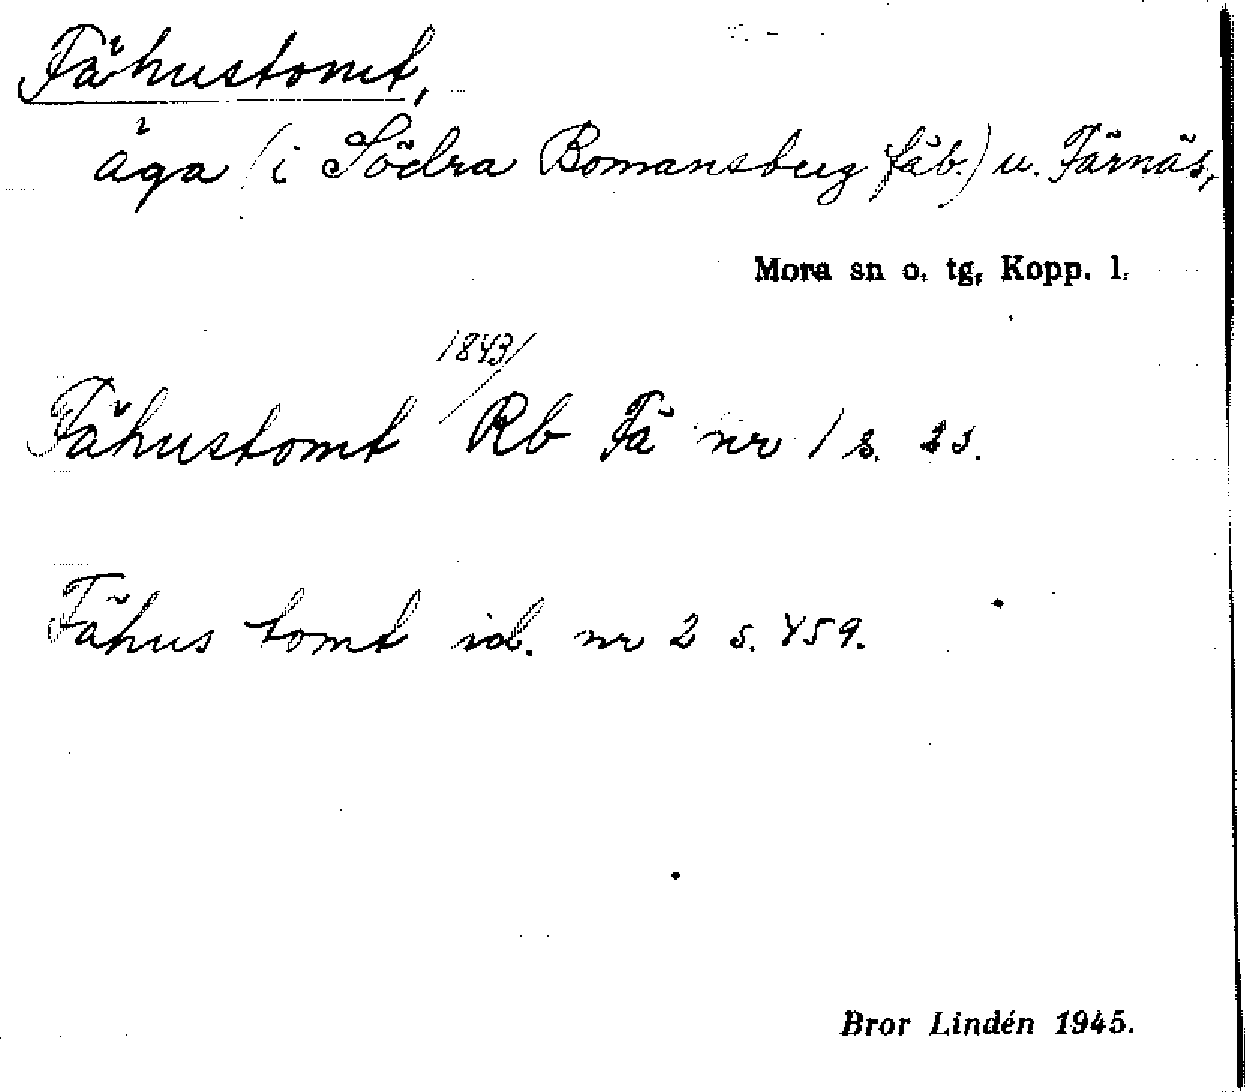 Fähustomt,
äga (i Södra Bomansberg fäb.) u. Färnäs,
Mora sn o. tg, Kopp. l.
/1843/
Fähustomt Rb Fä nr 1 s.
Fähus tomt id. nr 2 s. 459.
Bror Lindén 1945.